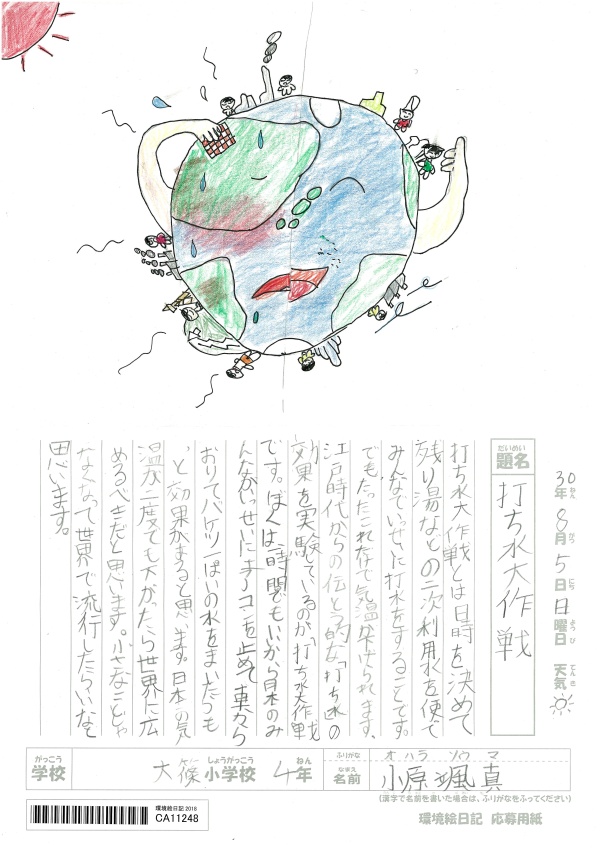 30年8月5日日曜日 天気
ねん がつ にち ようび てんき
だいめい
題名
打ち水大作戦
打ち水大作戦とは日時を決めて
残り湯などの二次利用水を使て
みんなでいっせいに打水をすることです。
でも、たったこれだけで気温が下げられます。
江戸時代からの伝とう的な「打ち水」の
効果を実験しているのが「打ち水大作戦
です。ぼくは一時間でもいいから日本のみ
んながいっせいにエアコンを止めて車から
おりてバケツ一ぱいの水をまいたらも
っと効果があると思います。日本の気
温が二度でも下がったら世界に広
めるべきだと思います。小さなことじゃ
なくなって世界で流行したらいいなと
思います。
がっこう しょうがっこう ねん
学校 大篠小学校 4年
ふりがな オハラ ソウマ
なまえ
名前 小原颯真
(漢字で名前を書いた場合は、ふりがなをふってください)
環境絵日記2018
CA11248
環境絵日記 応募用紙